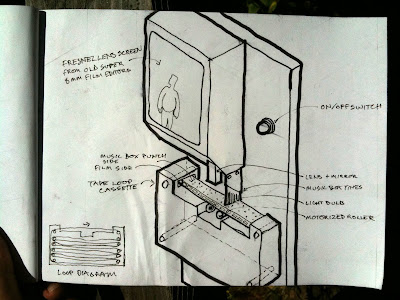 FRESNEL LENS SCREEN
FROM OLD SUPER
8 MM FILM EDITORS
ON/OFF SWITCH
MUSIC BOX PUNCH
SIDE
FILM SIDE
TAPE LOOP
CASSETTE
LENS + MIRROR
MUSIC BOX TINES
LIGHT BULB
MOTORIZED ROLLER
LOOP DIAGRAM